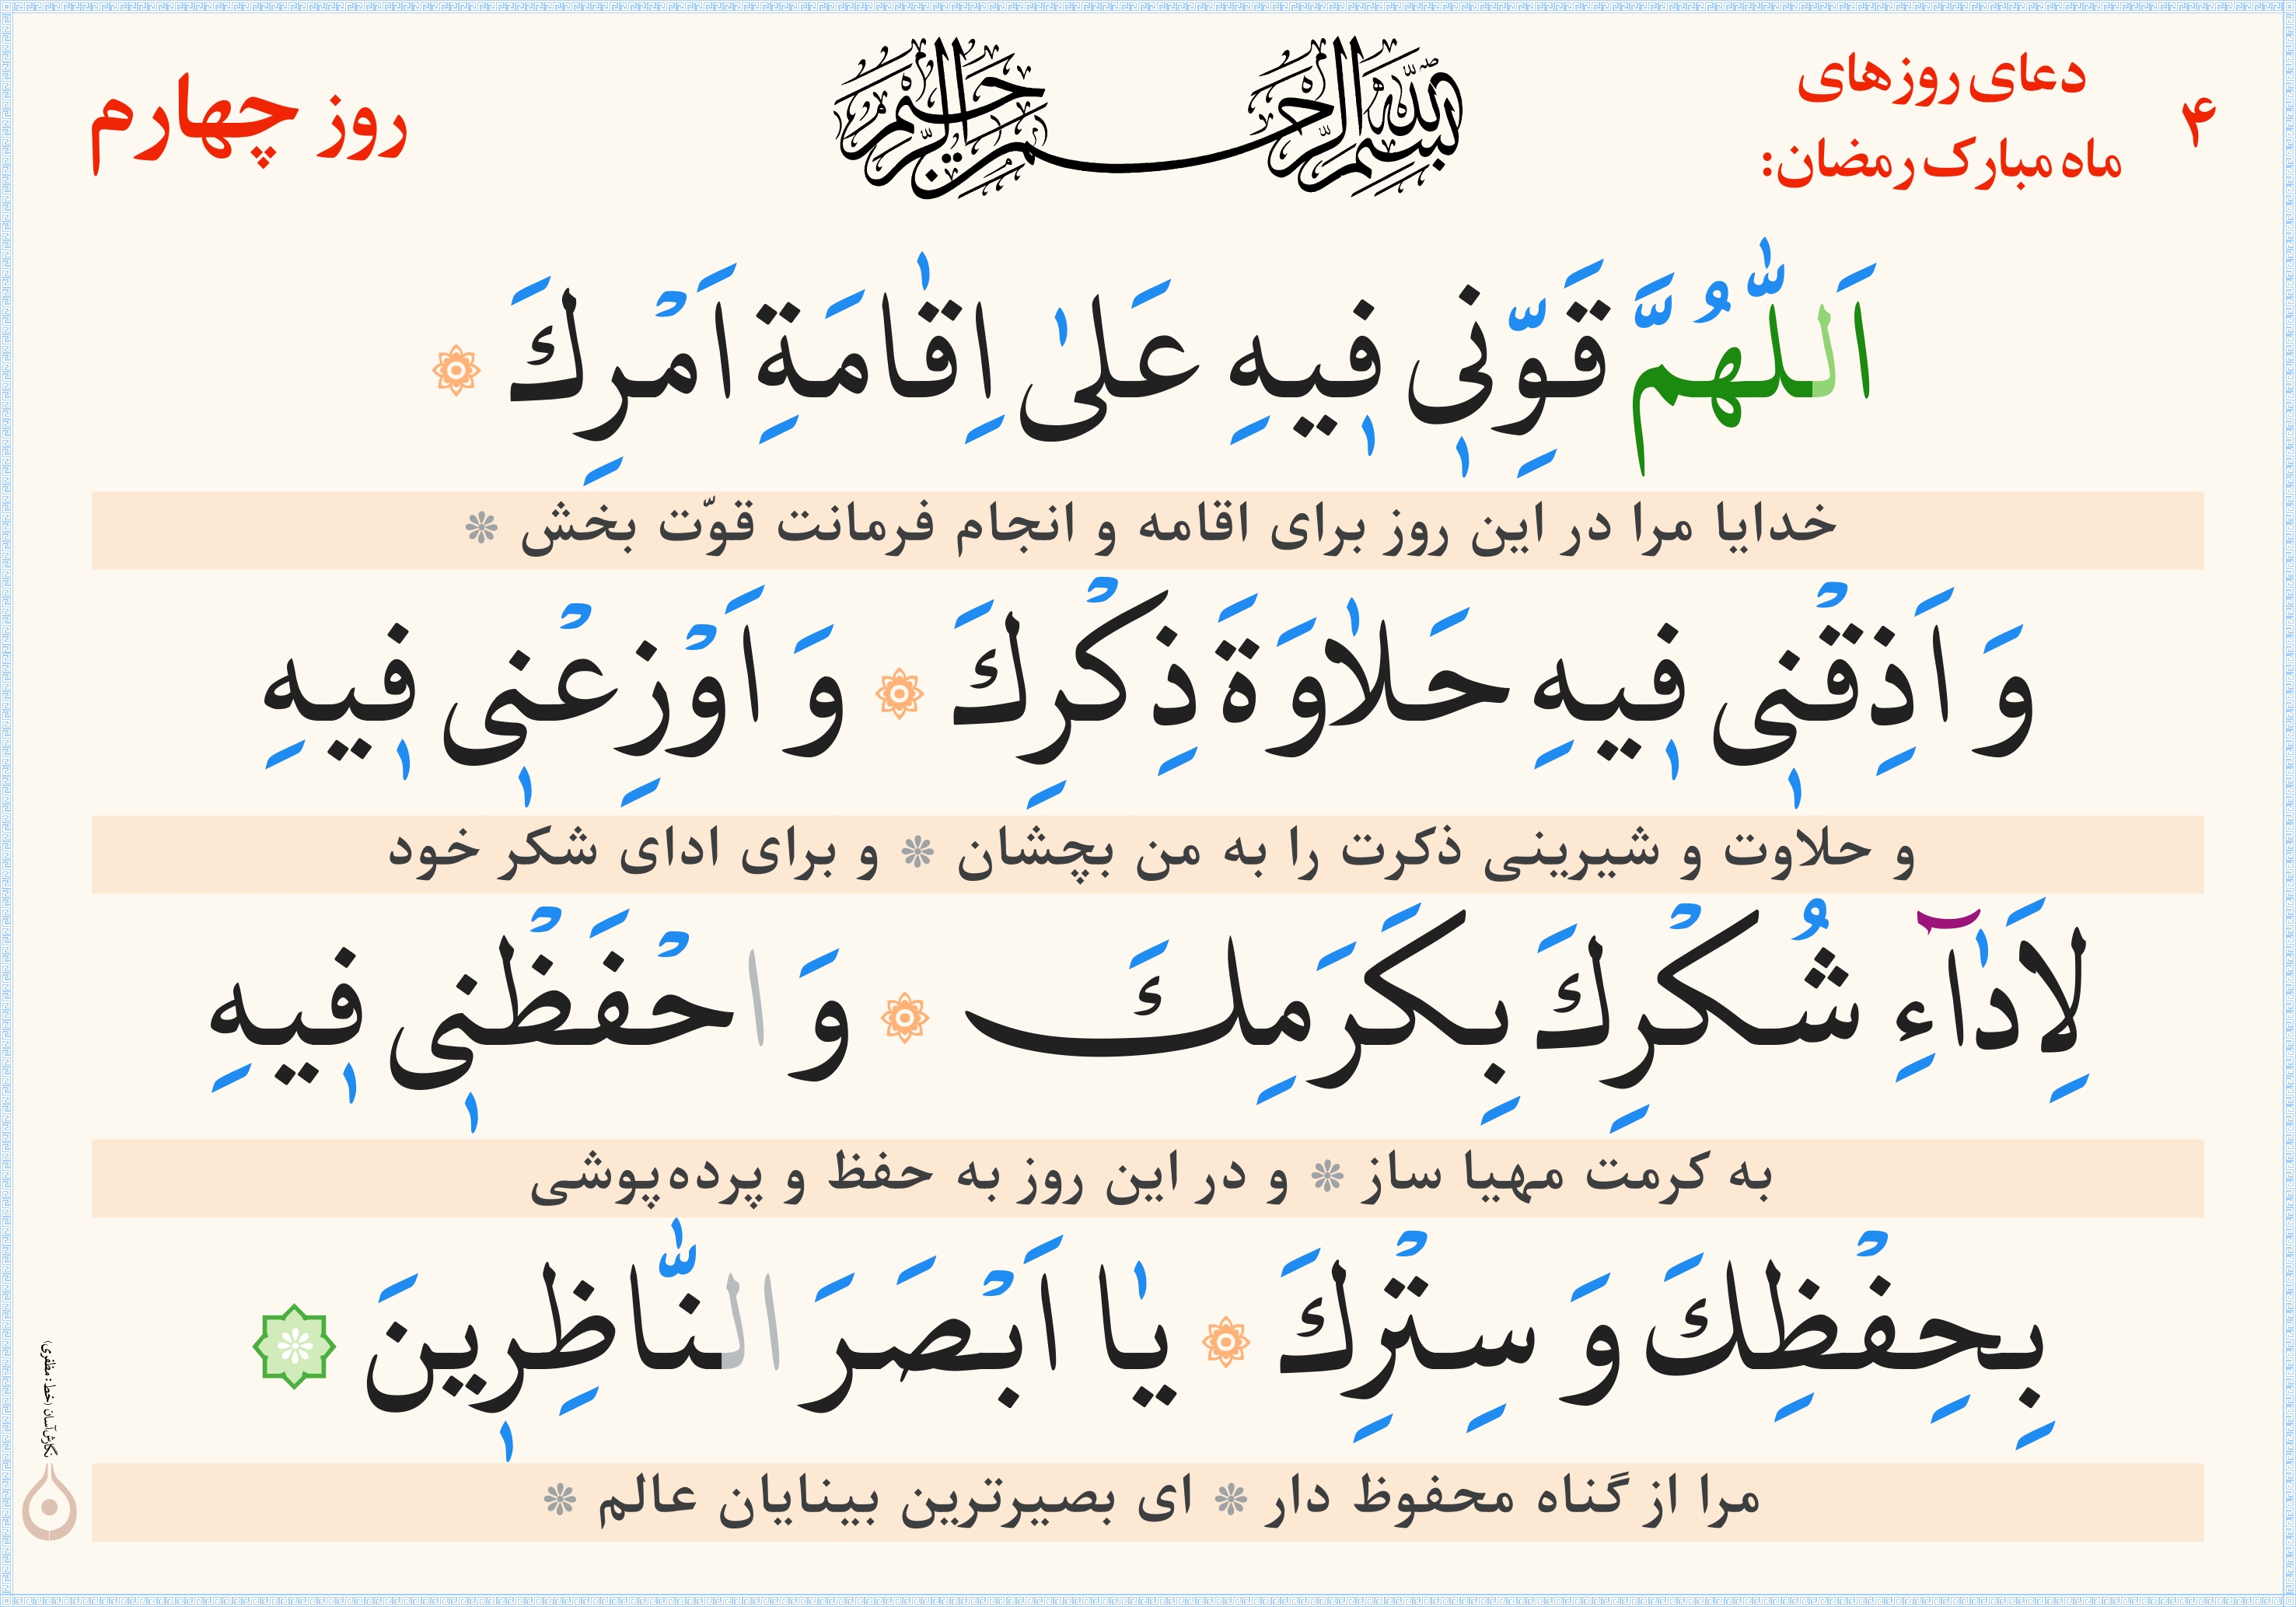 ۴
دعای روزهای
ماه مبارک رمضان:
بسم الله الرحمن الرحیم
روز چهارم
اَللّٰهُمَّ قَوِّنٖی فٖیهِ عَلیٰ اِقٰامَةِ اَمْرِكَ
خدایا مرا در این روز برای اقامه و انجام فرمانت قوّت بخش
وَ اَذِقْنٖی فٖیهِ حَلاٰوَةَ ذِكْرِكَ وَ اَوْزِعْنٖی فٖیهِ
و حلاوت و شیرینی ذکرت را به من بچشان و برای ادای شکر خود
لِاَدٰآءِ شُكْرِكَ بِكَرَمِكَ وَ احْفَظْنٖی فٖیهِ
به کرمت مهیا ساز و در این روز به حفظ و پرده‌پوشی
بِحِفْظِكَ وَ سِتْرِكَ یٰا اَبْصَرَ النّٰاظِرٖینَ
مرا از گناه محفوظ دار ای بصیرترین بینایان عالم
نگارش‌آسان (خط: مظفری)